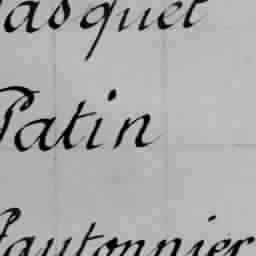 Pasquet
Patin
Pautonnier